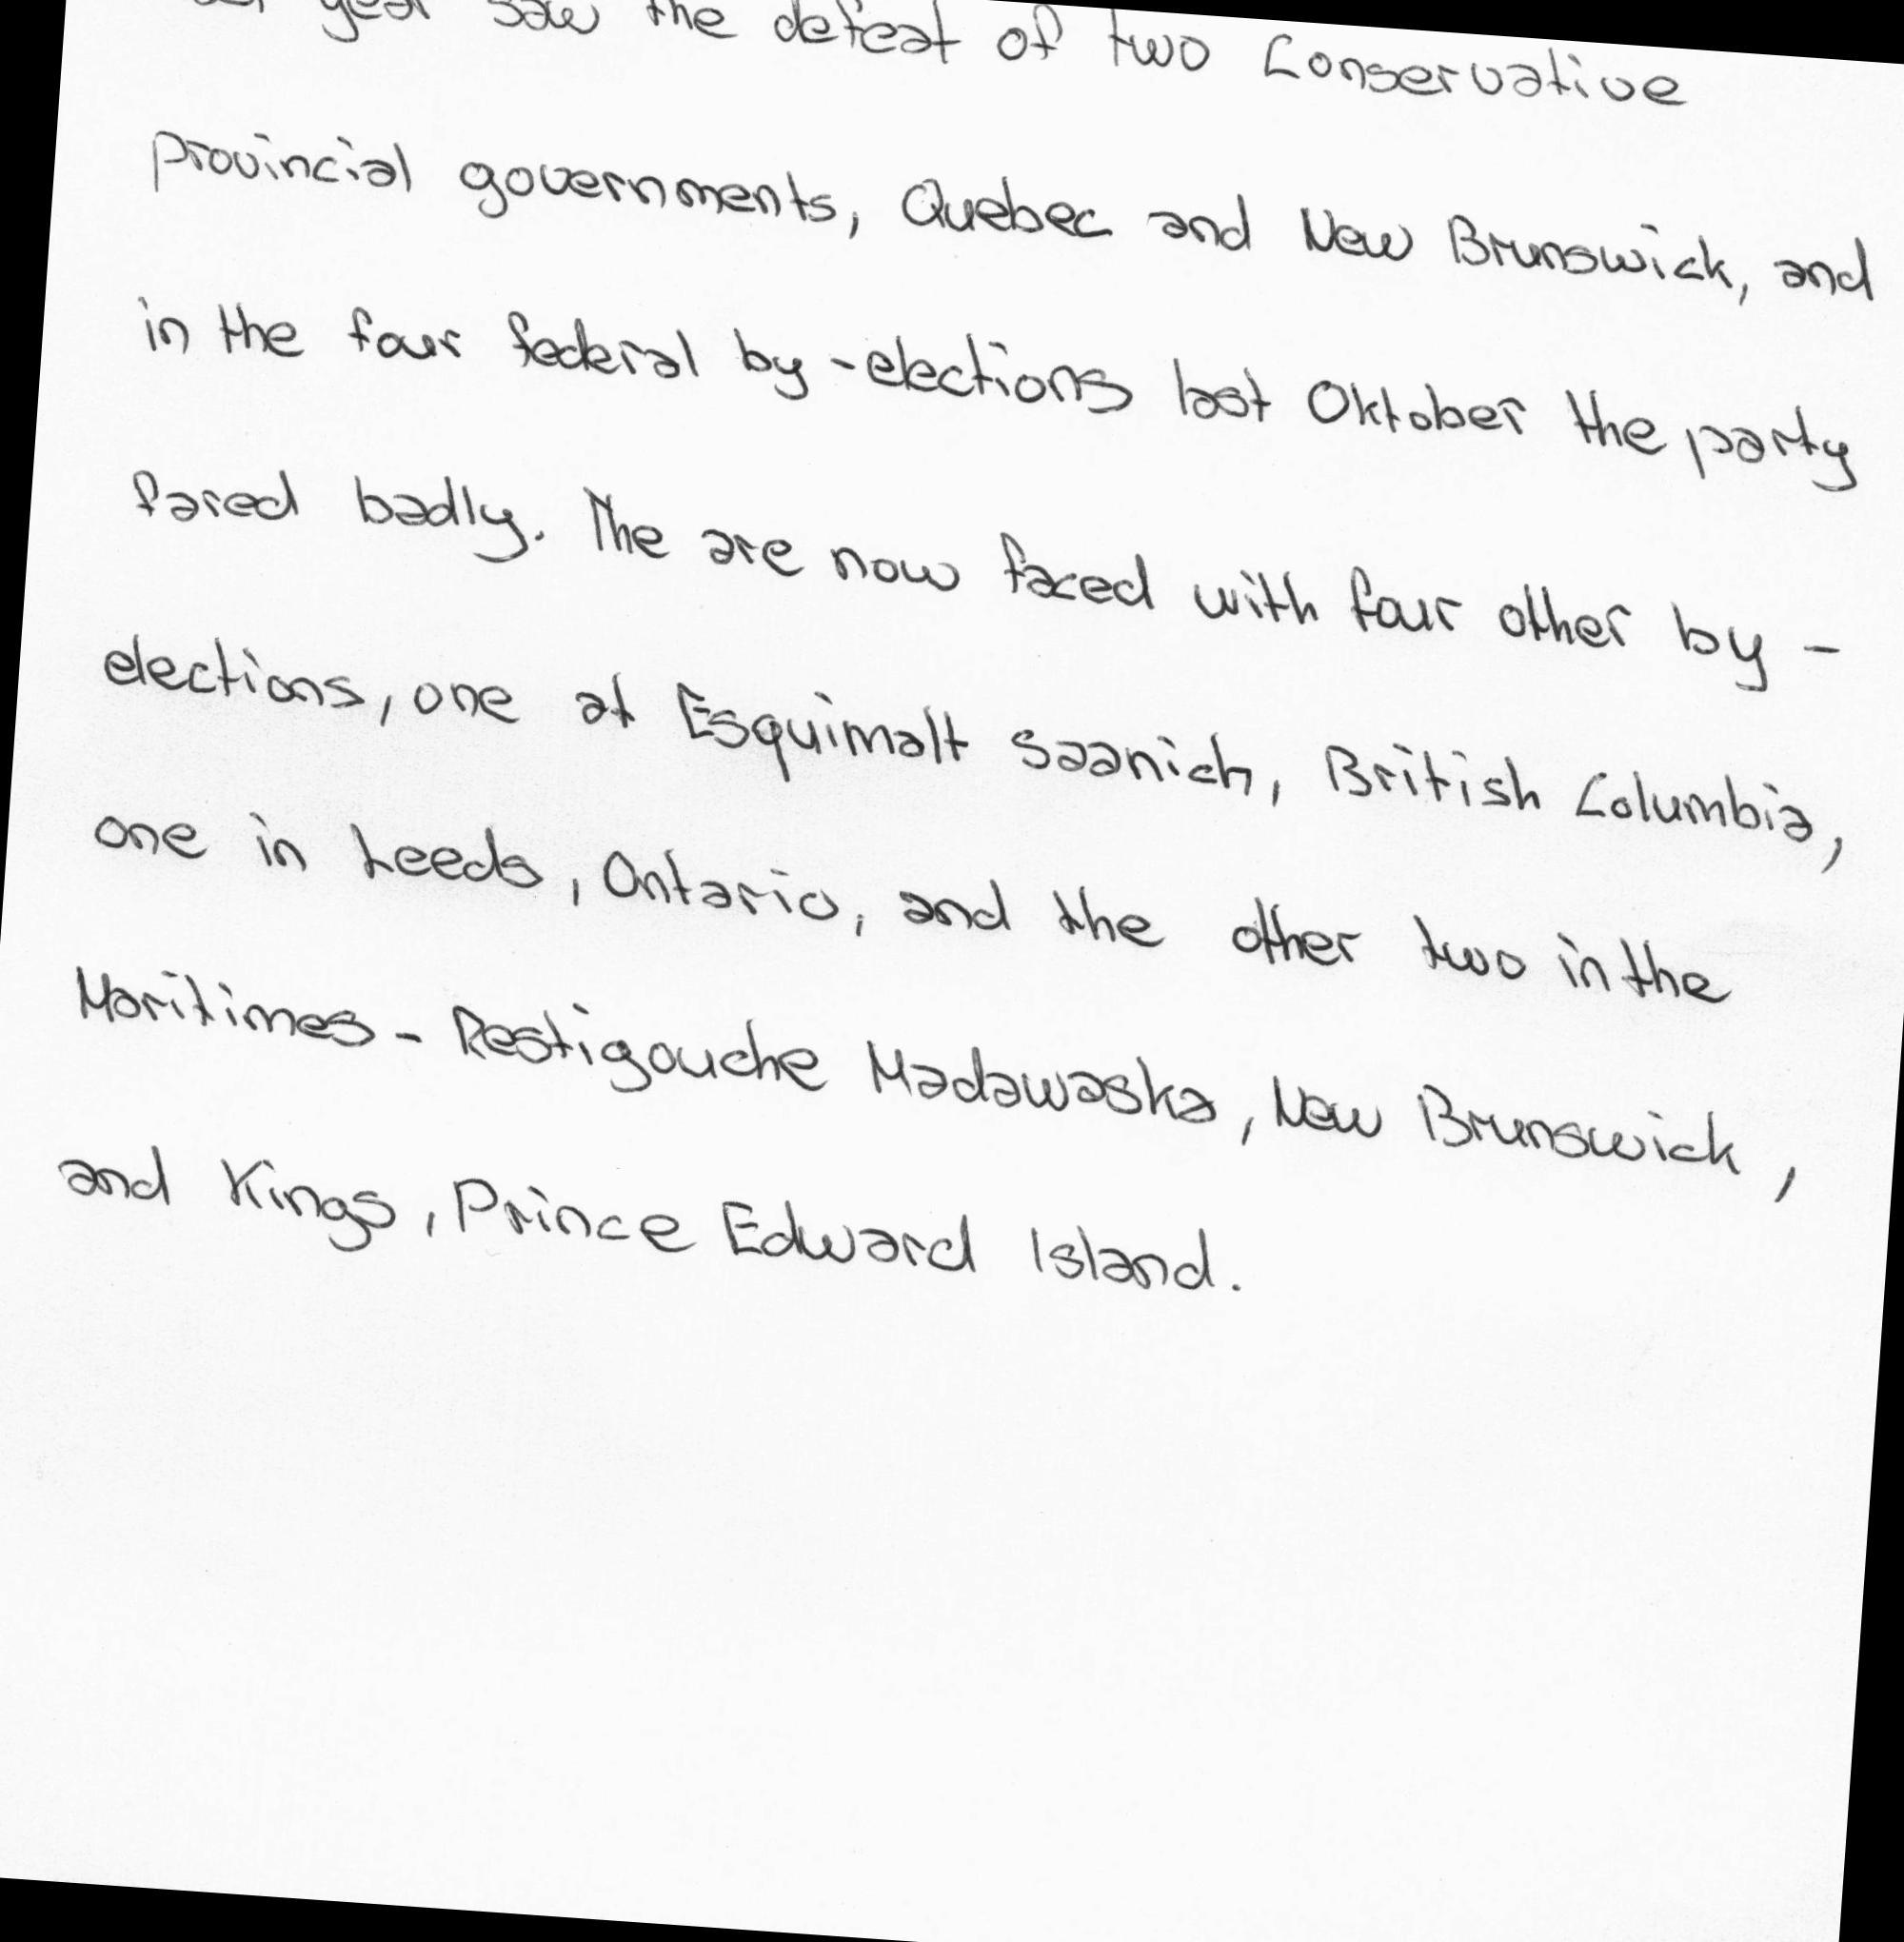 year saw the defeat of two Conservative
provincial governments, Quebec and New Brunswick, and
in the four federal by-elections last Oktober the party
fared badly. The are now faced with four other by-
elections, one at Esquimalt Saanich, British Columbia,
one in Leeds, Ontario, and the other two in the
Maritimes - Restigouche Madawaska, New Brunswick,
and Kings, Prince Edward Island.